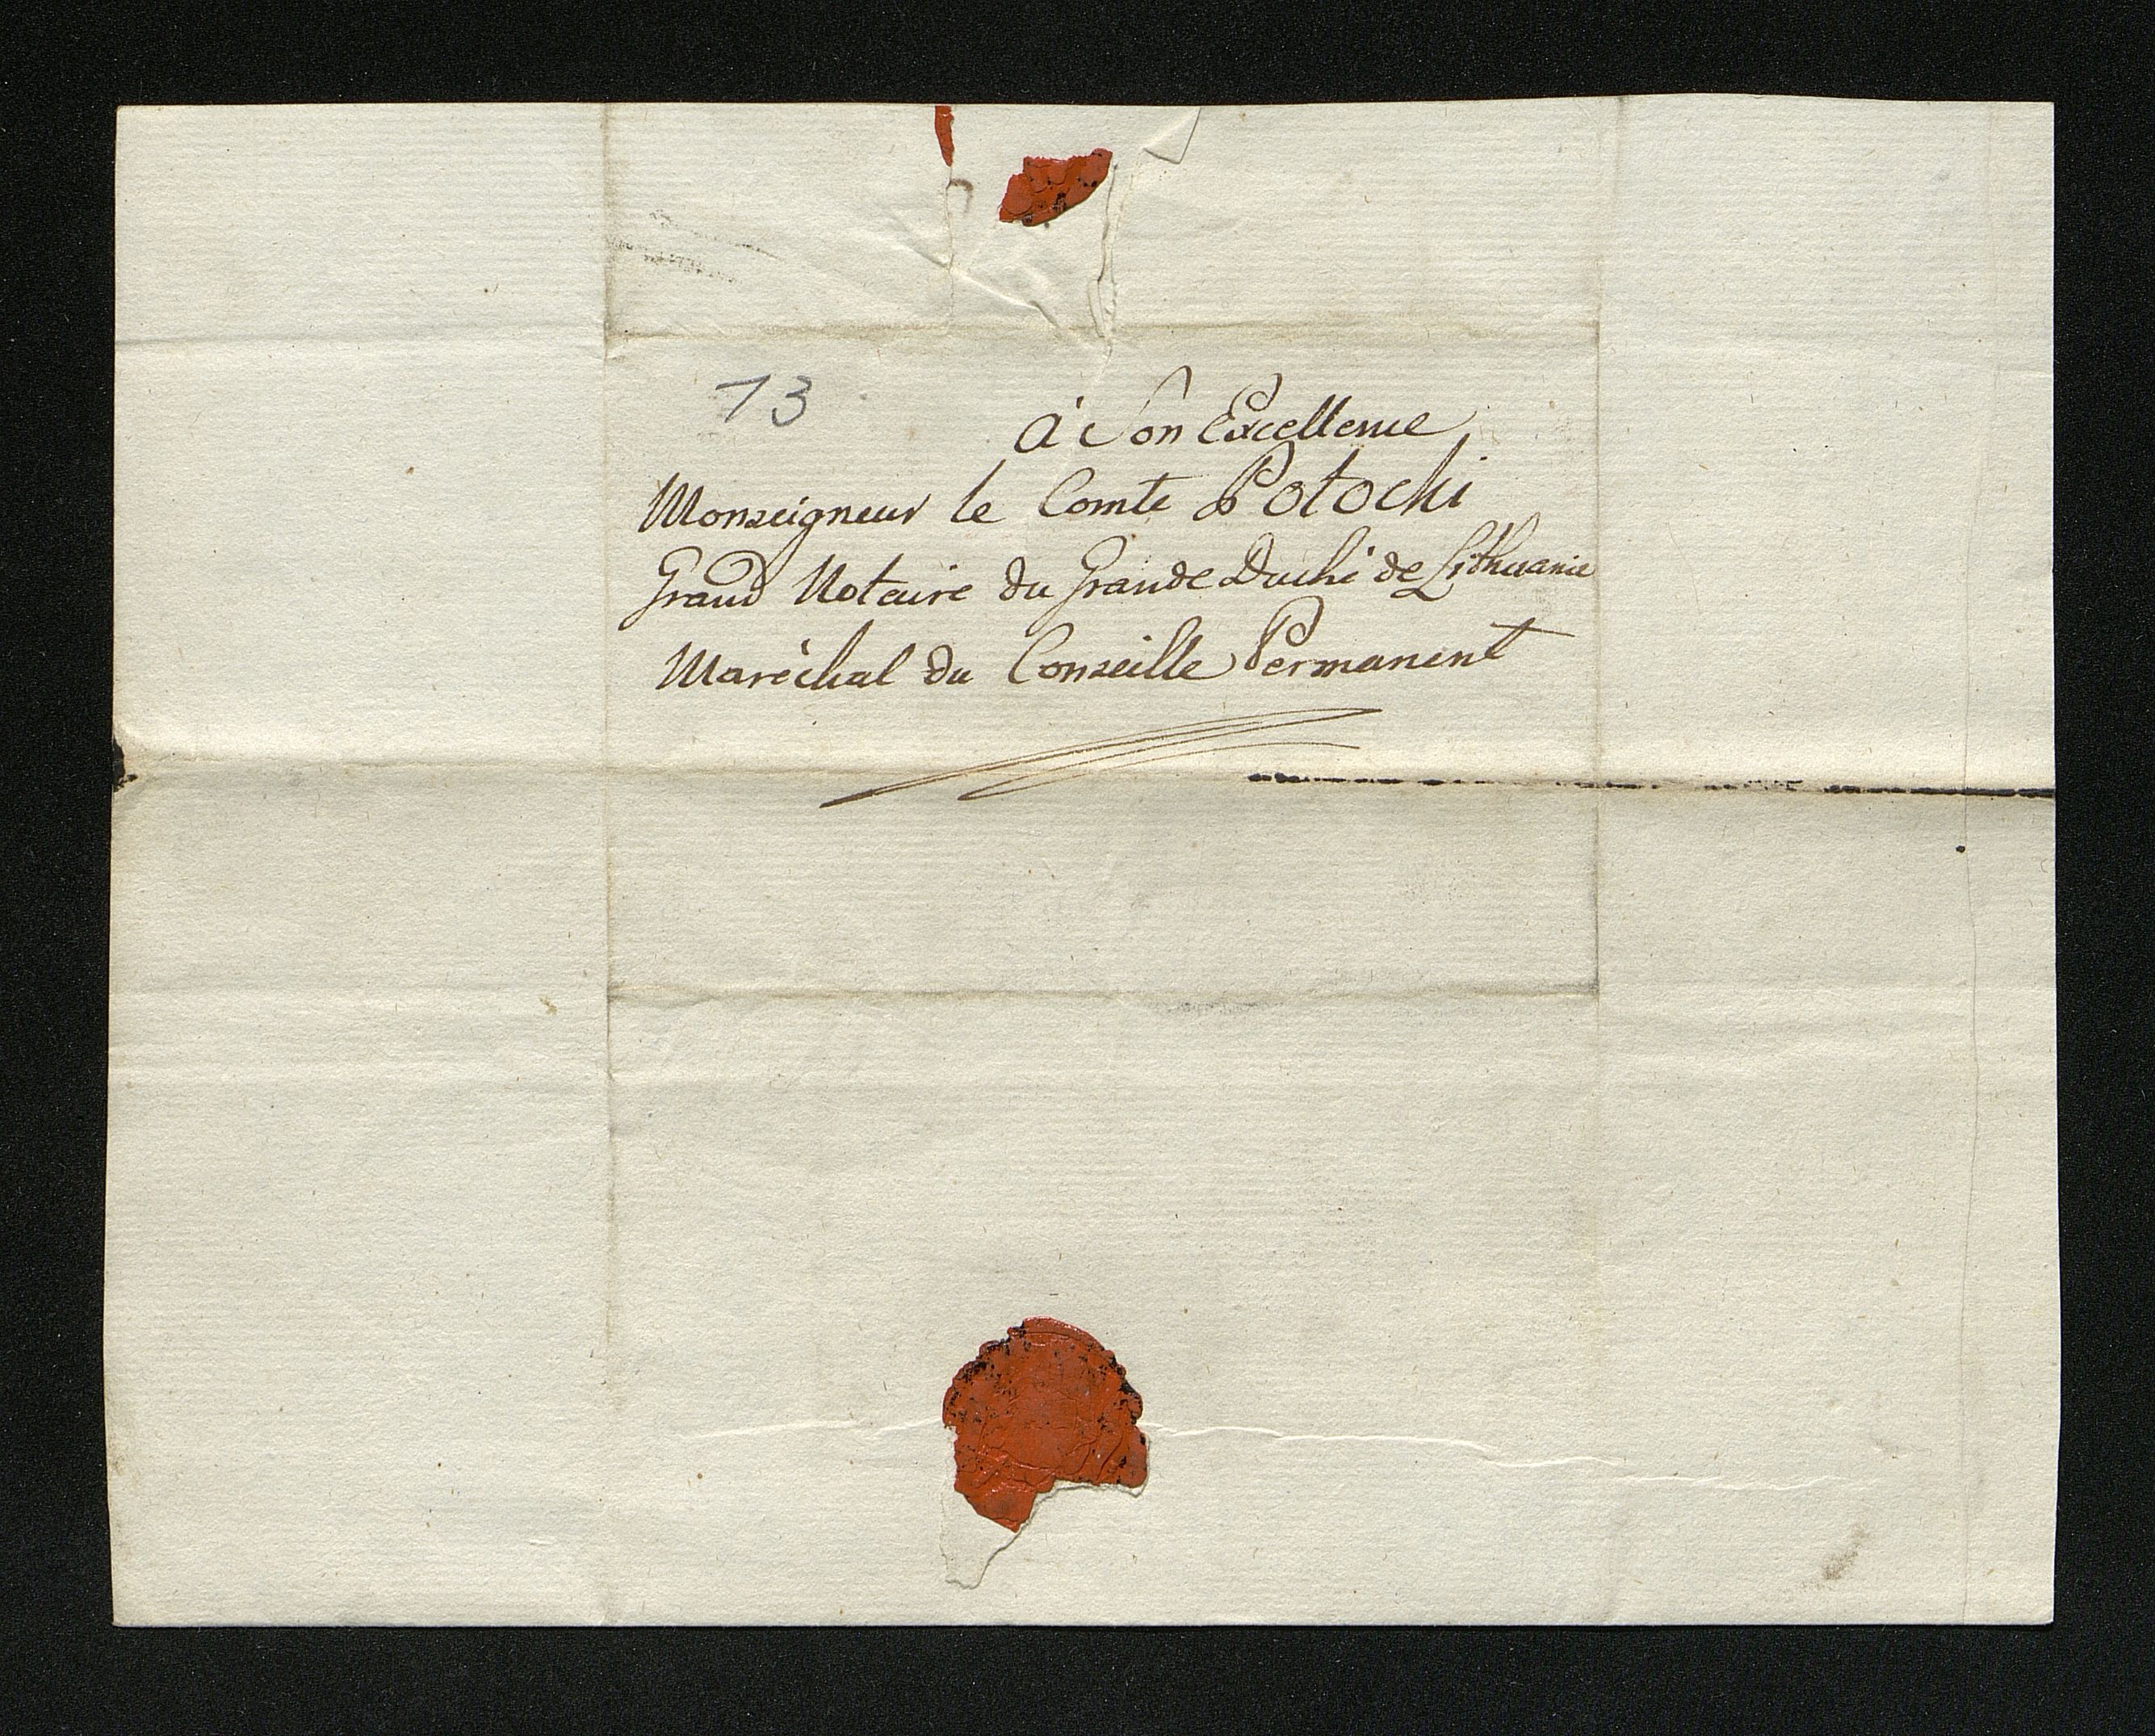 13
à Son Excellence
Monseigneur le Comte Potocki
Grand Notaire du Grande Duché de Lithuanie
Maréchal du Conseille Permanent